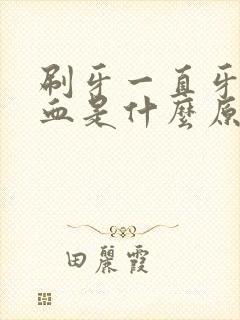 刷牙一直牙
血是什麼原
田麗霞